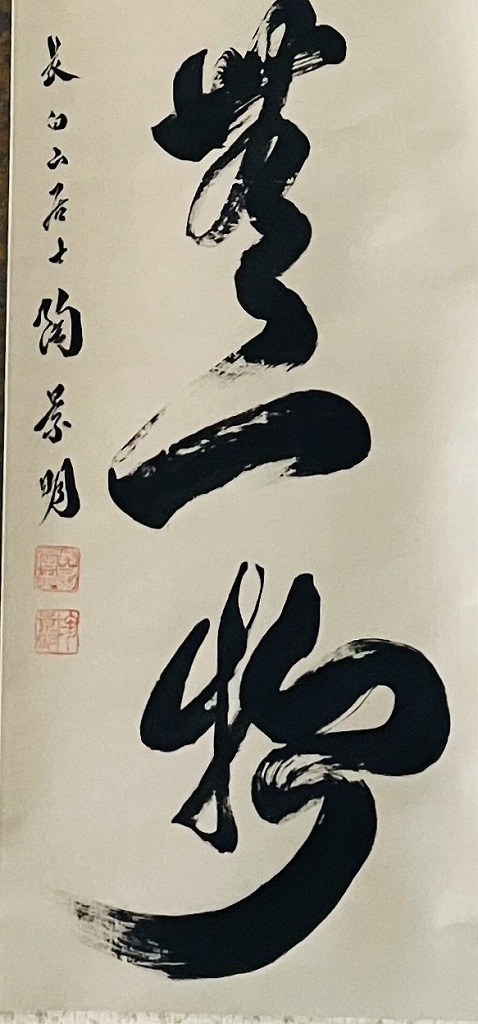 無一物
長白山居士陶景明